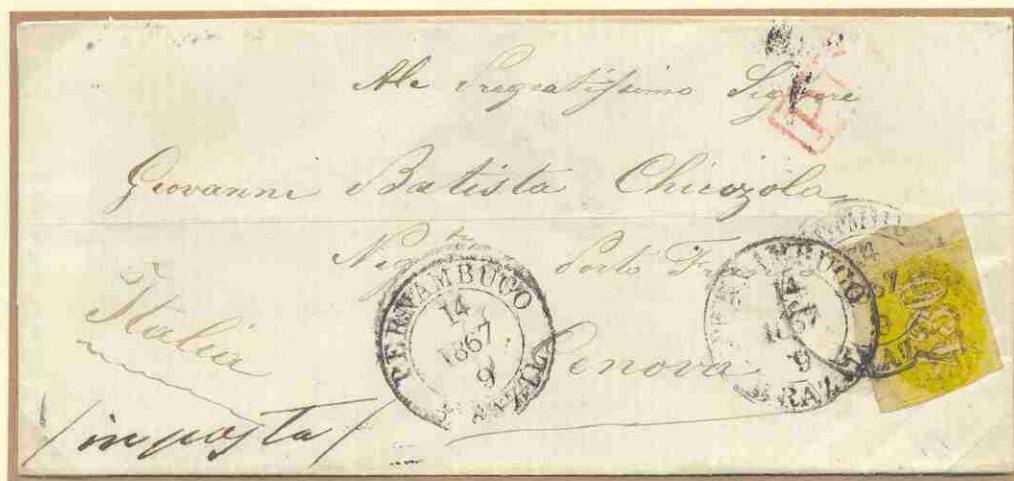 Ale Pregiatissimo Signore
Giovanni Batista Chiozola
Negte Porto Franco
Italia
Genova
/in posta/
PERNAMBUCO
14
1867
9
BRAZIL
PERNAMBUCO
14
1867
9
BRAZIL